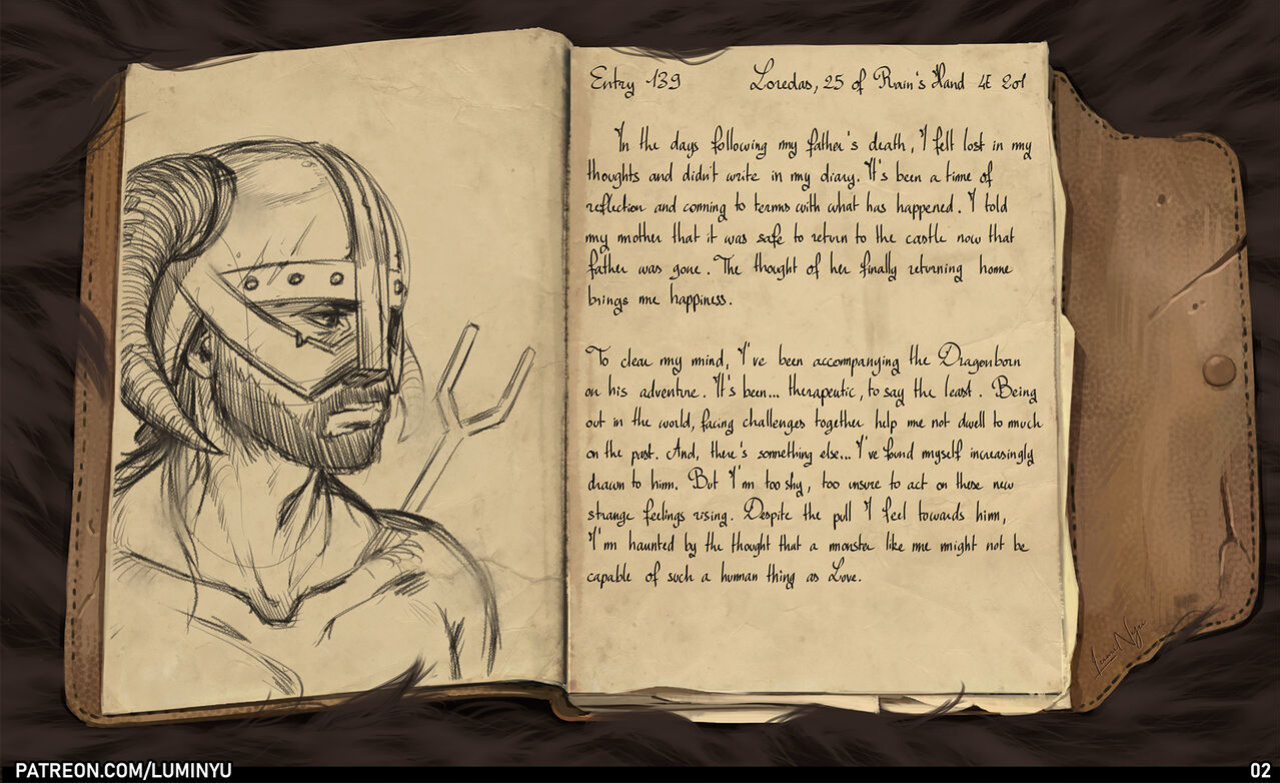 Entry 139 Loredas, 25 of Rain's Hand 4E 201
In the days following my father's death, I felt lost in my
thoughts and didn't write in my diary. It's been a time of
reflection and coming to terms with what has happened. I told
my mother that it was safe to return to the castle now that
father was gone. The thought of her finally returning home
brings me happiness.
To clear my mind, I've been accompanying the Dragonborn
on his adventure. It's been... therapeutic, to say the least. Being
out in the world, facing challenges together help me not dwell to much
on the past. And, there's something else... I've found myself increasingly
drawn to him. But I'm too shy, too unsure to act on these new
strange feelings rising. Despite the pull I feel towards him,
I'm haunted by the thought that a monster like me might not be
capable of such a human thing as Love.
PATREON.COM/LUMINYU
02